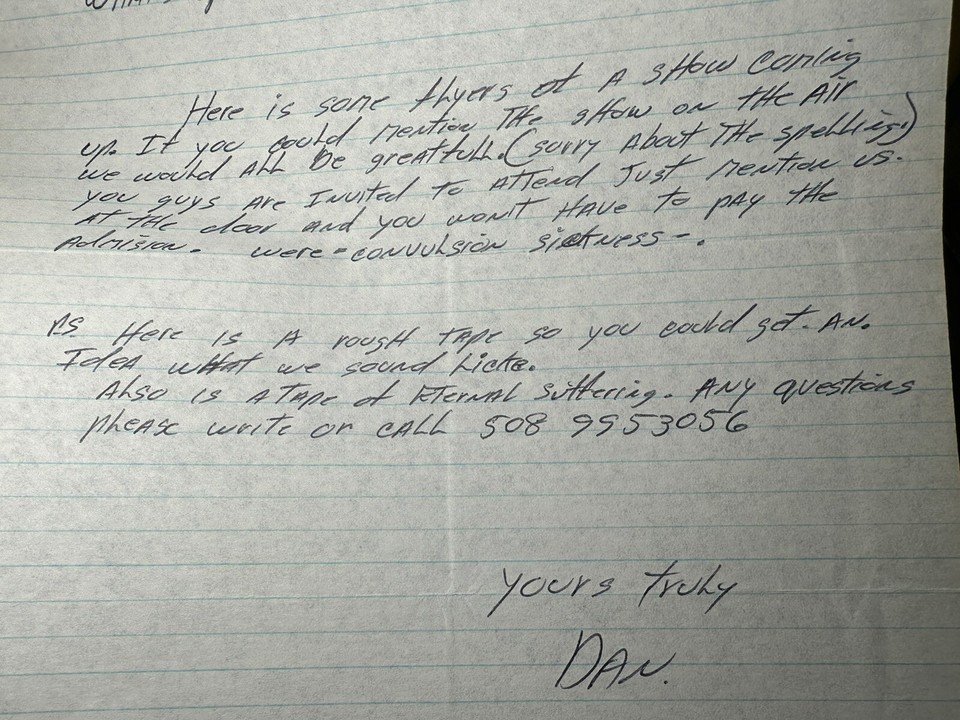 Here is some flyers of A sHow coming
up. If you could mention THe sHow on tHe Air
we would ALL be greatfull. (sorry About THe spelling.)
you guys Are Invited to Attend Just mention us.
At tHe door and you won't HAve to pAy the
Admision. were - convulsion sickness -.
P.S. Here is A rougH tApe so you could get. AN.
IdeA wHat we sound Licke.
Also is A TApe of Eternal Suffering. ANy questions
pleAse write or cALL 508 9953056
yours truly
DAN.